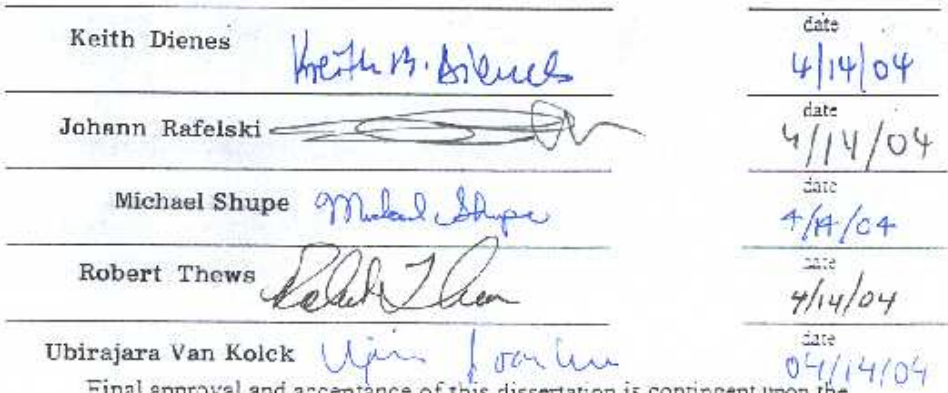 date
Keith Dienes Keith R. Dienes 4/14/04
date
Johann Rafelski 4/14/04
date
Michael Shupe Michael Shupe 4/14/04
date
Robert Thews Robert Thews 4/14/04
date
Ubirajara Van Kolck 04/14/04
Final approval and acceptance of this dissertation is contingent upon the